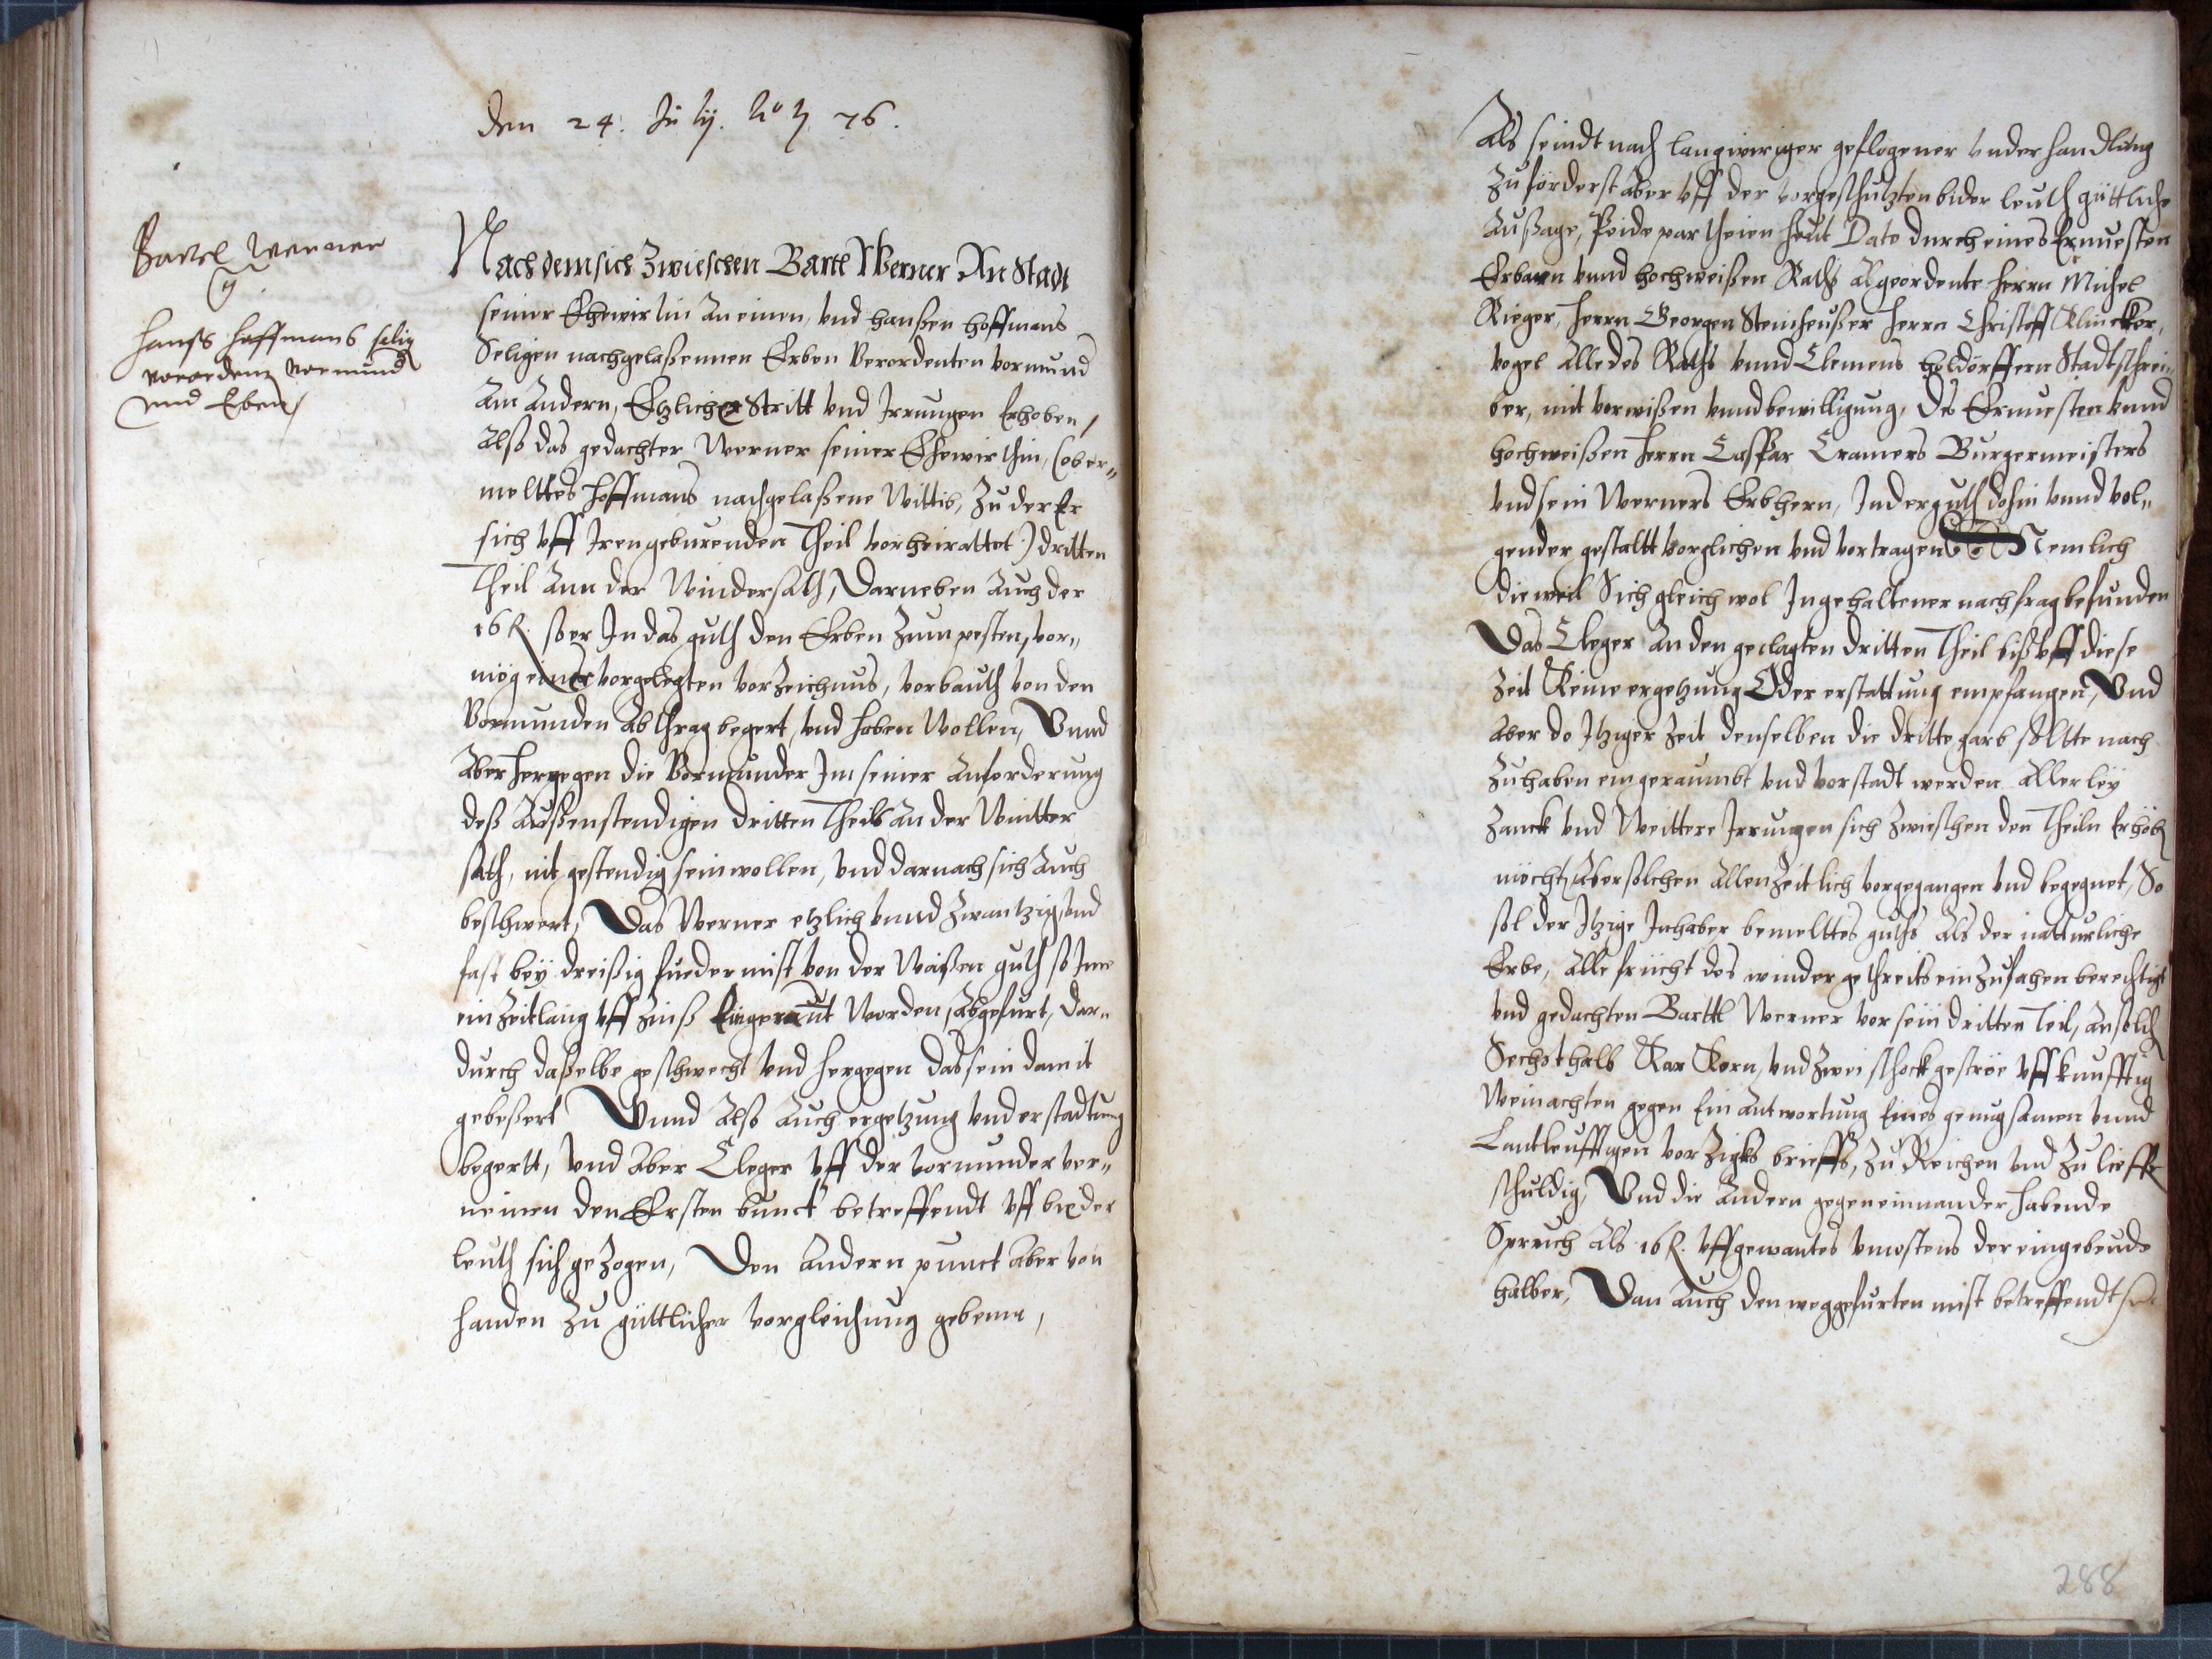 den 24. July. A° 76.
Bartel Werner
Hanß Hoffmans selig
verordenz vormund
und Erben
Nachdem sich Zwieschen Bartel Werner An Stadt
seiner Ehewirtin An einen, und Hanßen Hoffmans
Seligen nachgelaßennen Erben Verordenten vormund
Am Andern, Etzliche Stritt und Irrungen Erhoben,
Alß das gedachter Werner seiner Ehewirthin, (ober„
melttes Hoffmans nachgelaßene Wittib, Zu der Er
sich uff Iren geburenden Theil vorheirattet) dritten
Theil Ann der Windersath, Darneben Auch der
16 R. so er In das guth den Erben Zum pesten, vor„
mög eines vorgelegten vorZeichnus, vorbauth von den
Vormunden Abthrag begert, und haben Wollen, Unnd
Aber hergegen die Vormunder Im seiner Anforderung
deß Außenstendigen dritten Theils An der Wintter
sath, nit gestendig sein wollen, und darnach sich Auch
beschwert, Das Werner etzlich unnd Zwantzig, und
fast bey dreißig fueder mist von der Waißen guth so Ime
ein Zeitlang uff Zinß Eingeraut Worden, Abgefurt, Dar„
durch daßelbe geschwecht und hergegen das sein damit
gebeßert Unnd Alß Auch ergetzung und erstadtung
begertt, und Aber Cleger uff der vormunder ver„
neinen den Ersten bunct betreffendt uff bieder
leuth sich geZogen, Den Andern punct Aber von
handen Zu güttlicher vorgleichung gebenn,
Als seindt nach langwiriger gepflogener underhandlung
Zuförderst Aber uff der vorgeschutzten bider leuth güttliche
Außage, Peide partheien heut Dato durch eines Ernuesten
Erbarn unnd hochweißen Raths Abgeordente Herrn Michel
Rieger, Herrn Georgen Steinheußer Herrn Christoff Klinckher,
vogel Alle des Raths unnd Clemens Holdörffern Stadtschrei„
ber, mit vorwißen unnd bewilligung, des Ernuesten unnd
hochweißen Herrn Caspar Cramers Burgermeisters
und sein Werners Erbhern, In der guth dohin unnd vol„
gender gestaltt vorglichen und vertragen Nemlich
dieweil Sich gleichwol In gehaltener nachfrag befunden
Das Cleger An den geclagten dritten Theil biß uff diese
Zeit Keine ergetzung Oder erstattung empfangen, Und
Aber do Itziger Zeit denselben die dritte garb soltte nach
Zuhaben eingeraumbt und vorstadt werden Allerley
Zanck und Weittere Irrungen sich Zwieschen den Theiln Erhöb
möcht, Aber solchen Allen Zeitlich vorgegangen und begegnet, So
sol der Itzige Inhaber bemelttes guths Als der natturliche
Erbe, Alle frücht des winder gethreits einZufahen berechtigt
und gedachten Barttl Werner vor sein dritten Teil, An solch
Sechsthalb Kar Korn, und Zwei schock geströe uff kunfftig
Weinachten gegen Ein Antwortung Eines genugsamen unnd
Landleufftigen vor Zigks brieffs, Zu Reichen und Zu lieffr
schuldig, Und die Andern gegen einnander habende
Spruch Als 16 R. uffgewantes unkostens der eingebeude
halber, Dan Auch den weggefurten mist betreffendt
288